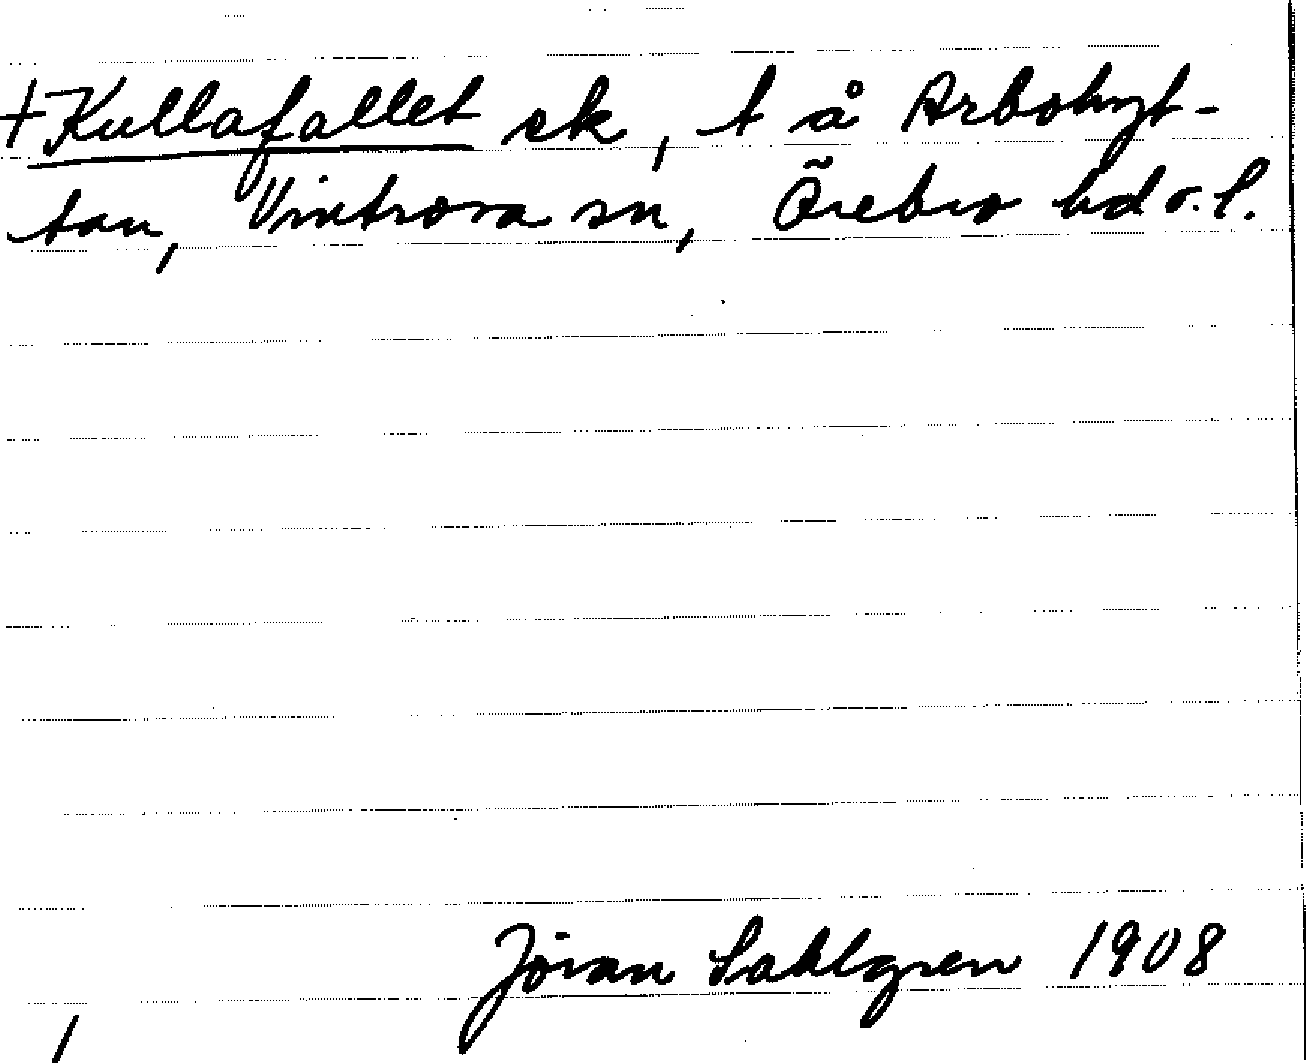 +Kullafallet sk, t å Arbohyt-
tan, Vintrosa sn, Örebro hd o. l.
Jöran Sahlgren 1908
1